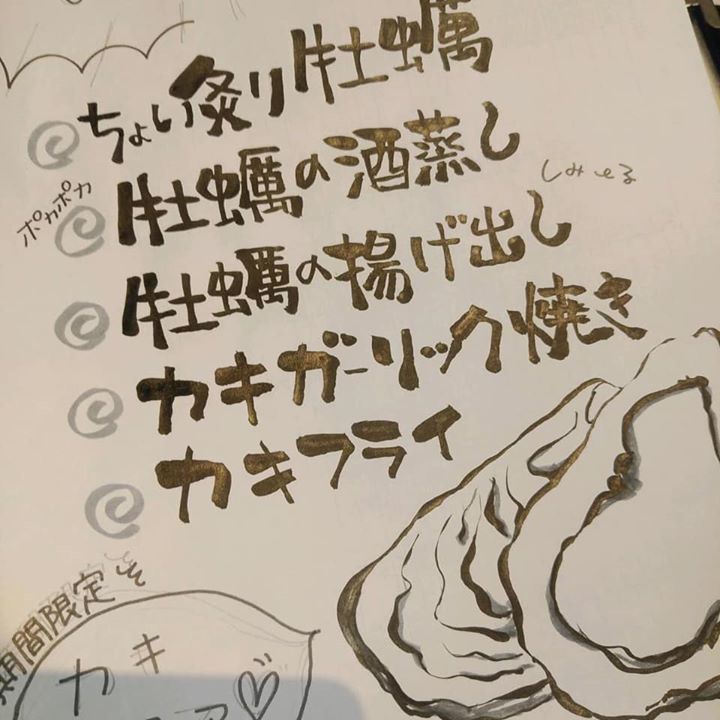 ちょい炙り牡蠣
ポカポカ
牡蠣の酒蒸し
しみてる
牡蠣の揚げ出し
カキガーリック焼き
カキフライ
期間限定
カキ